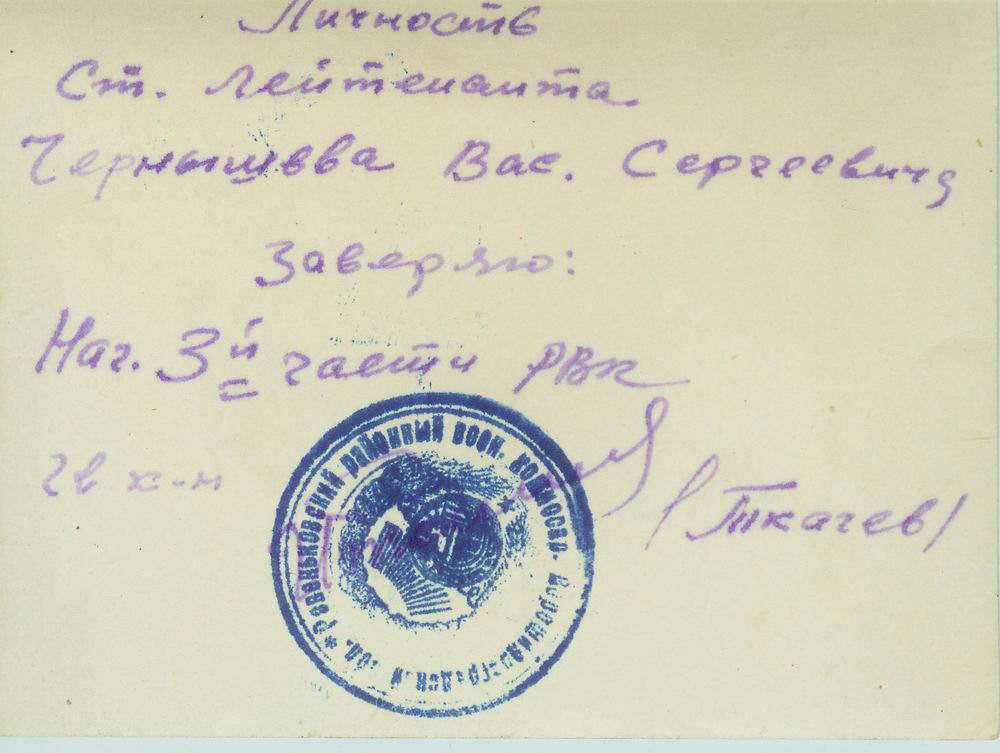 Личность
Ст. Лейтенанта
Чернышева Вас. Сергеевича
Заверяю:
Нач. 3й части РВК
Гв к-н
(Ткачев)
* Ровеньковский районный воен. комиссар. Ворошиловградской обл.